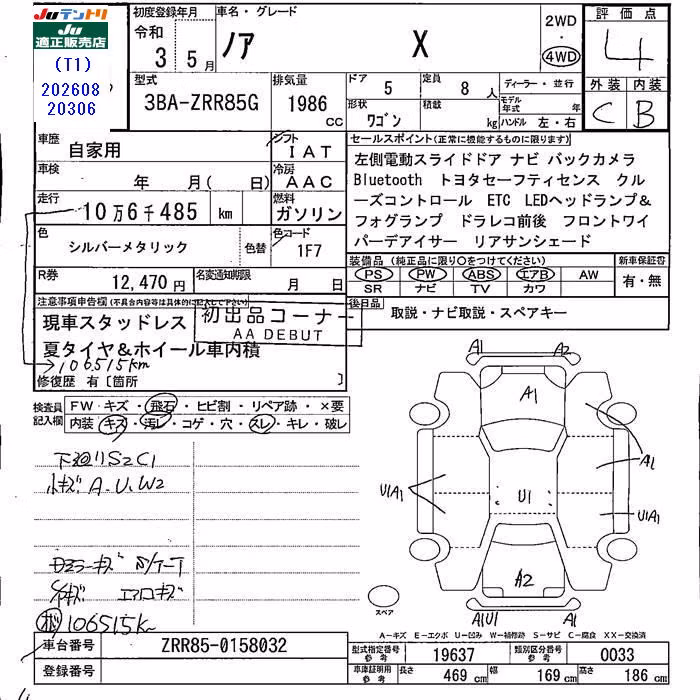 JUテントリ
JU
適正販売店
(T1)
202608
20306
初度登録年月
令和
3 5 月
車名・グレード
ノア X
2WD
・
4WD
評価点
4
外装 内装
C B
型式
3BA-ZRR85G
排気量
1986 CC
ドア 5
定員 8 人
形状 ワゴン
積載 kg
ディーラー・並行
モデル年式 年
ハンドル 左・右
車歴
自家用
シフト
IAT
車検
年 月( 日)
冷房
AAC
走行
10万6千485 km
燃料
ガソリン
色
シルバーメタリック
色替
色コード
1F7
R券
12,470 円
名変通知期限
月 日
セールスポイント(正常に機能するものに限ります)
左側電動スライドドア ナビ バックカメラ
Bluetooth トヨタセーフティセンス クル
ーズコントロール ETC LEDヘッドランプ&
フォグランプ ドラレコ前後 フロントワイ
パーデアイサー リアサンシェード
装備品 (純正品に限り○をつけてください)
PS PW ABS エアB AW
SR ナビ TV カワ
新車保証書
有・無
後日品
取説・ナビ取説・スペアキー
注意事項申告欄(不具合内容等は具体的に記入して下さい)
現車スタッドレス
夏タイヤ&ホイール車内積
初出品コーナー
AA DEBUT
106515km
修復歴 有〔箇所 〕
検査員
記入欄
FW・キズ・飛石・ヒビ割・リペア跡・×要
内装・キズ・汚レ・コゲ・穴・スレ・キレ・破レ
下廻りS2C1
小キズ A.U.W2
エアロキズ
106515k
A1 A2
A1
A1
U1A1
U1
U1A1
A2
A1U1 A1
スペア
A-キズ E-エクボ U-凹み W-補修跡 S-サビ C-腐食 XX-交換済
車台番号
ZRR85-0158032
登録番号
型式指定番号
参考
19637
類別区分番号
参考
0033
車庫証明用
参考
長さ 469 cm
幅 169 cm
高さ 186 cm